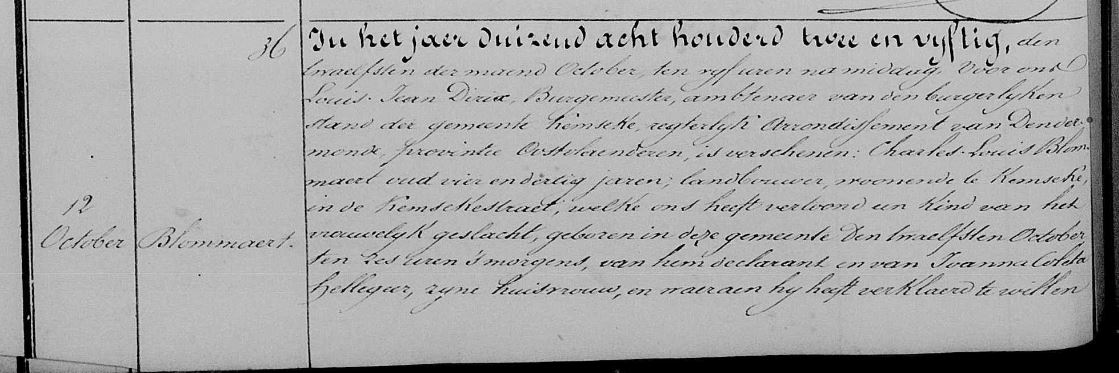 36
In het jaer duizend acht honderd twee en vyftig, den
twaelfsten der maend October, ten vyf uren namiddag, voor ons
Louis Jean Dirix, Burgemeester, ambtenaer van den burgerlyken
stand der gemeente Kemseke, regterlyk arrondissement van Dender-
monde, provintie Oostvlaenderen, is verschenen: Charles Louis Blom-
maert oud vier en dertig jaren, landbouwer, woonende te Kemseke,
in de Kemsekestraet, welke ons heeft vertoond een kind van het
vrouwelyk geslacht, geboren in deze gemeente den twaelfsten October
ten zes uren 's morgens, van hem declarant en van Joanna Coleta
, zyne huisvrouw, en waeraen hy heeft verklaerd te willen
12
October
Blommaert.